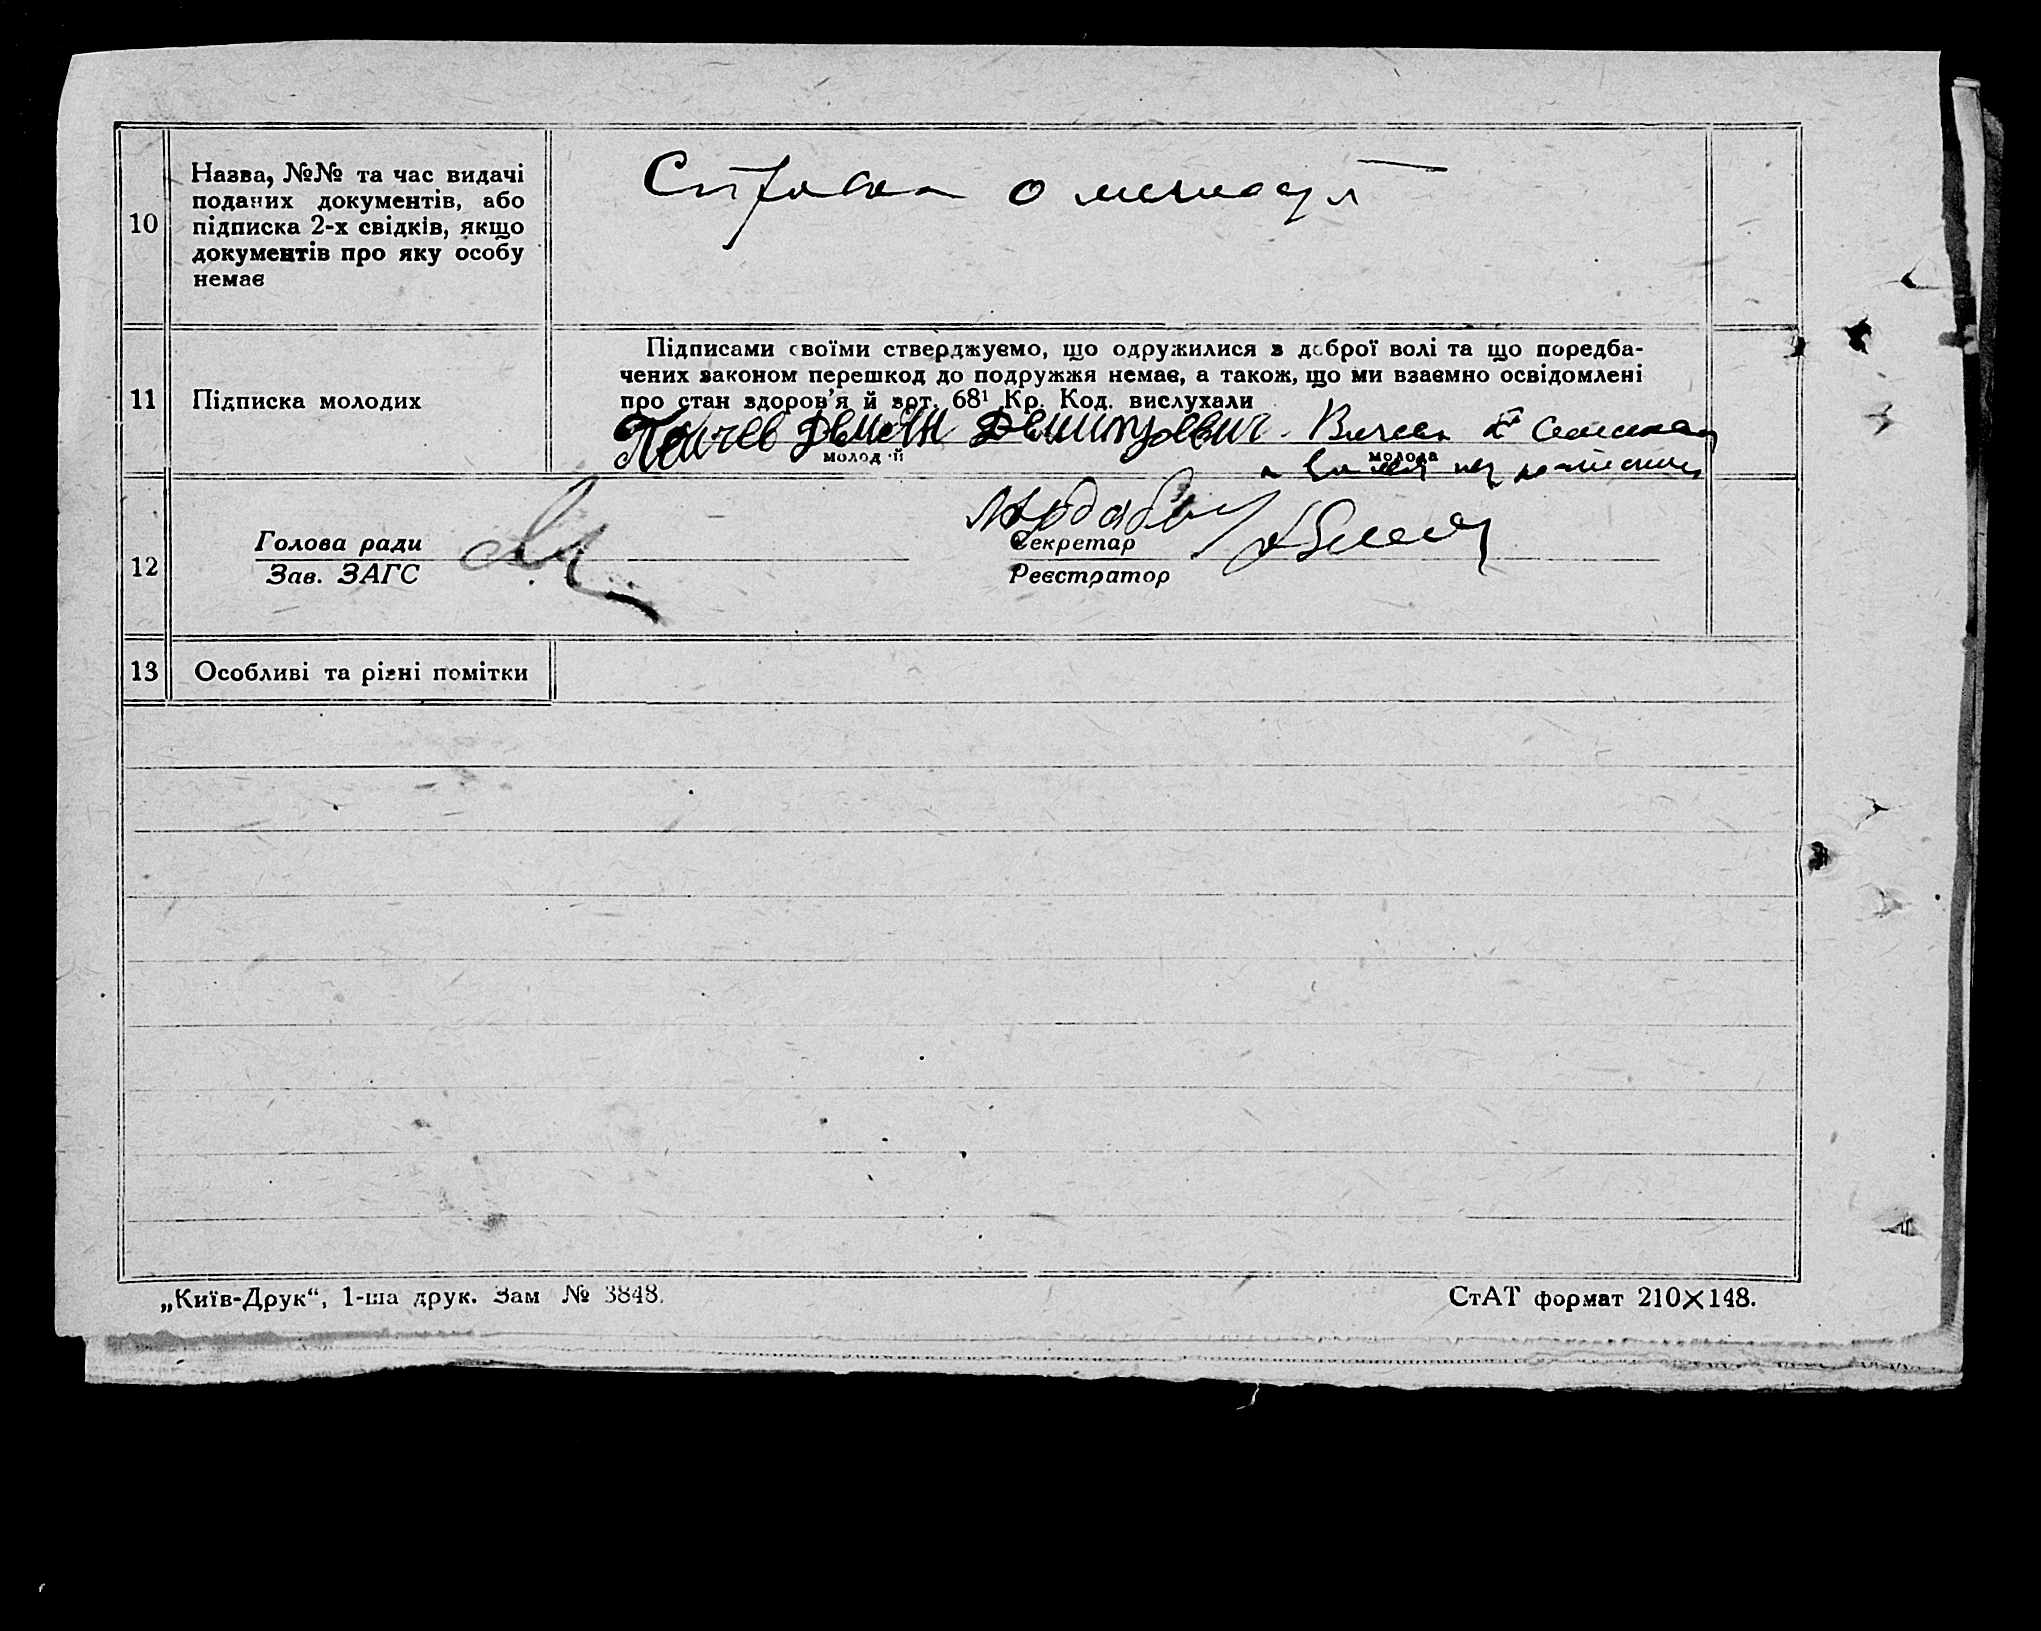 10
Назва, №№ та час видачі
поданих документів, або
підписка 2-х свідків, якщо
документів про яку особу
немає
Справка о
11
Підписка молодих
Підписами своїми стверджуємо, що одружилися з доброї волі та що поредба-
чених законом перешкод до подружжя немає, а також, що ми взаємно освідомлені
про стан здоров'я й арт. 68¹ Кр. Код. вислухали
Демян Дмитрович
молодий
молода
12
Голова ради
Секретар
Зав. ЗАГС
Реєстратор
13
Особливі та різні помітки
„Київ-Друк“, 1-ша друк. Зам № 3848.
СтАТ формат 210×148.